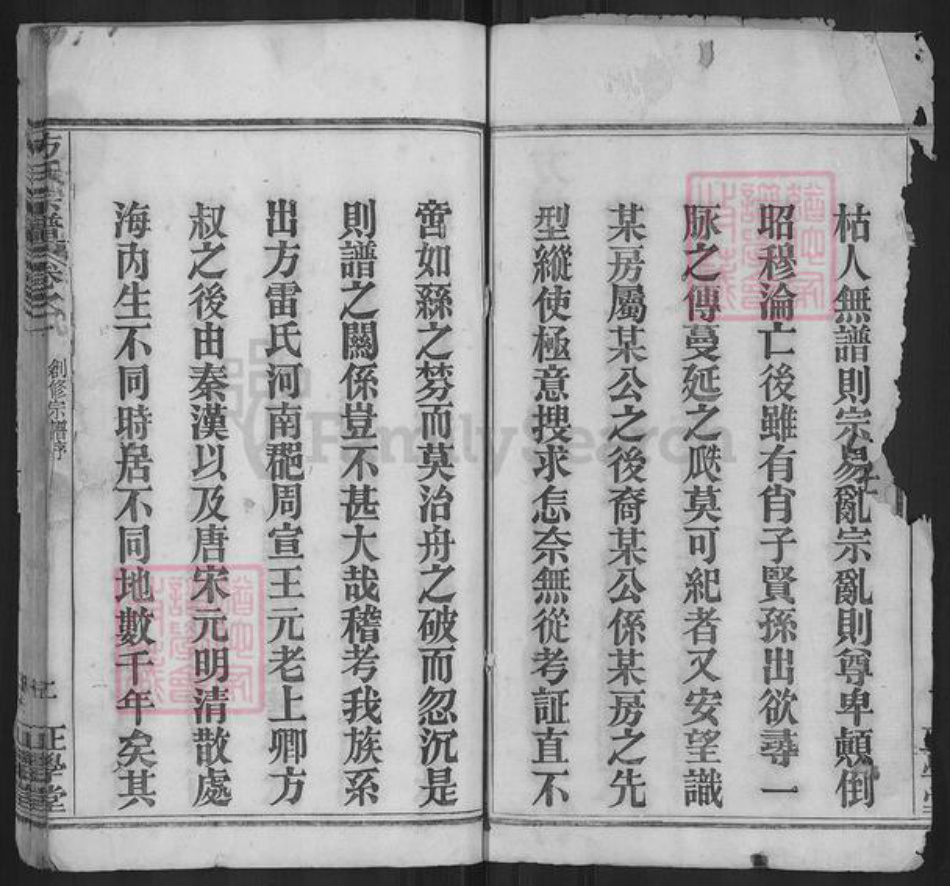 枯人無譜則宗易亂宗亂則尊卑顛倒
昭穆淪亡後雖有肖子賢孫出欲尋一
脉之傳蔓延之瓞莫可紀者又安望識
某房屬某公之後裔某公係某房之先
型縱使極意搜求怎奈無從考証直不
啻如絲之棼而莫治舟之破而忽沉是
則譜之關係豈不甚大哉稽考我族系
出方雷氏河南郡周宣王元老上卿方
叔之後由秦漢以及唐宋元明清散處
海內生不同時居不同地數千年矣其
方氏宗譜 卷之
創修宗譜序
正學堂
FamilySearch